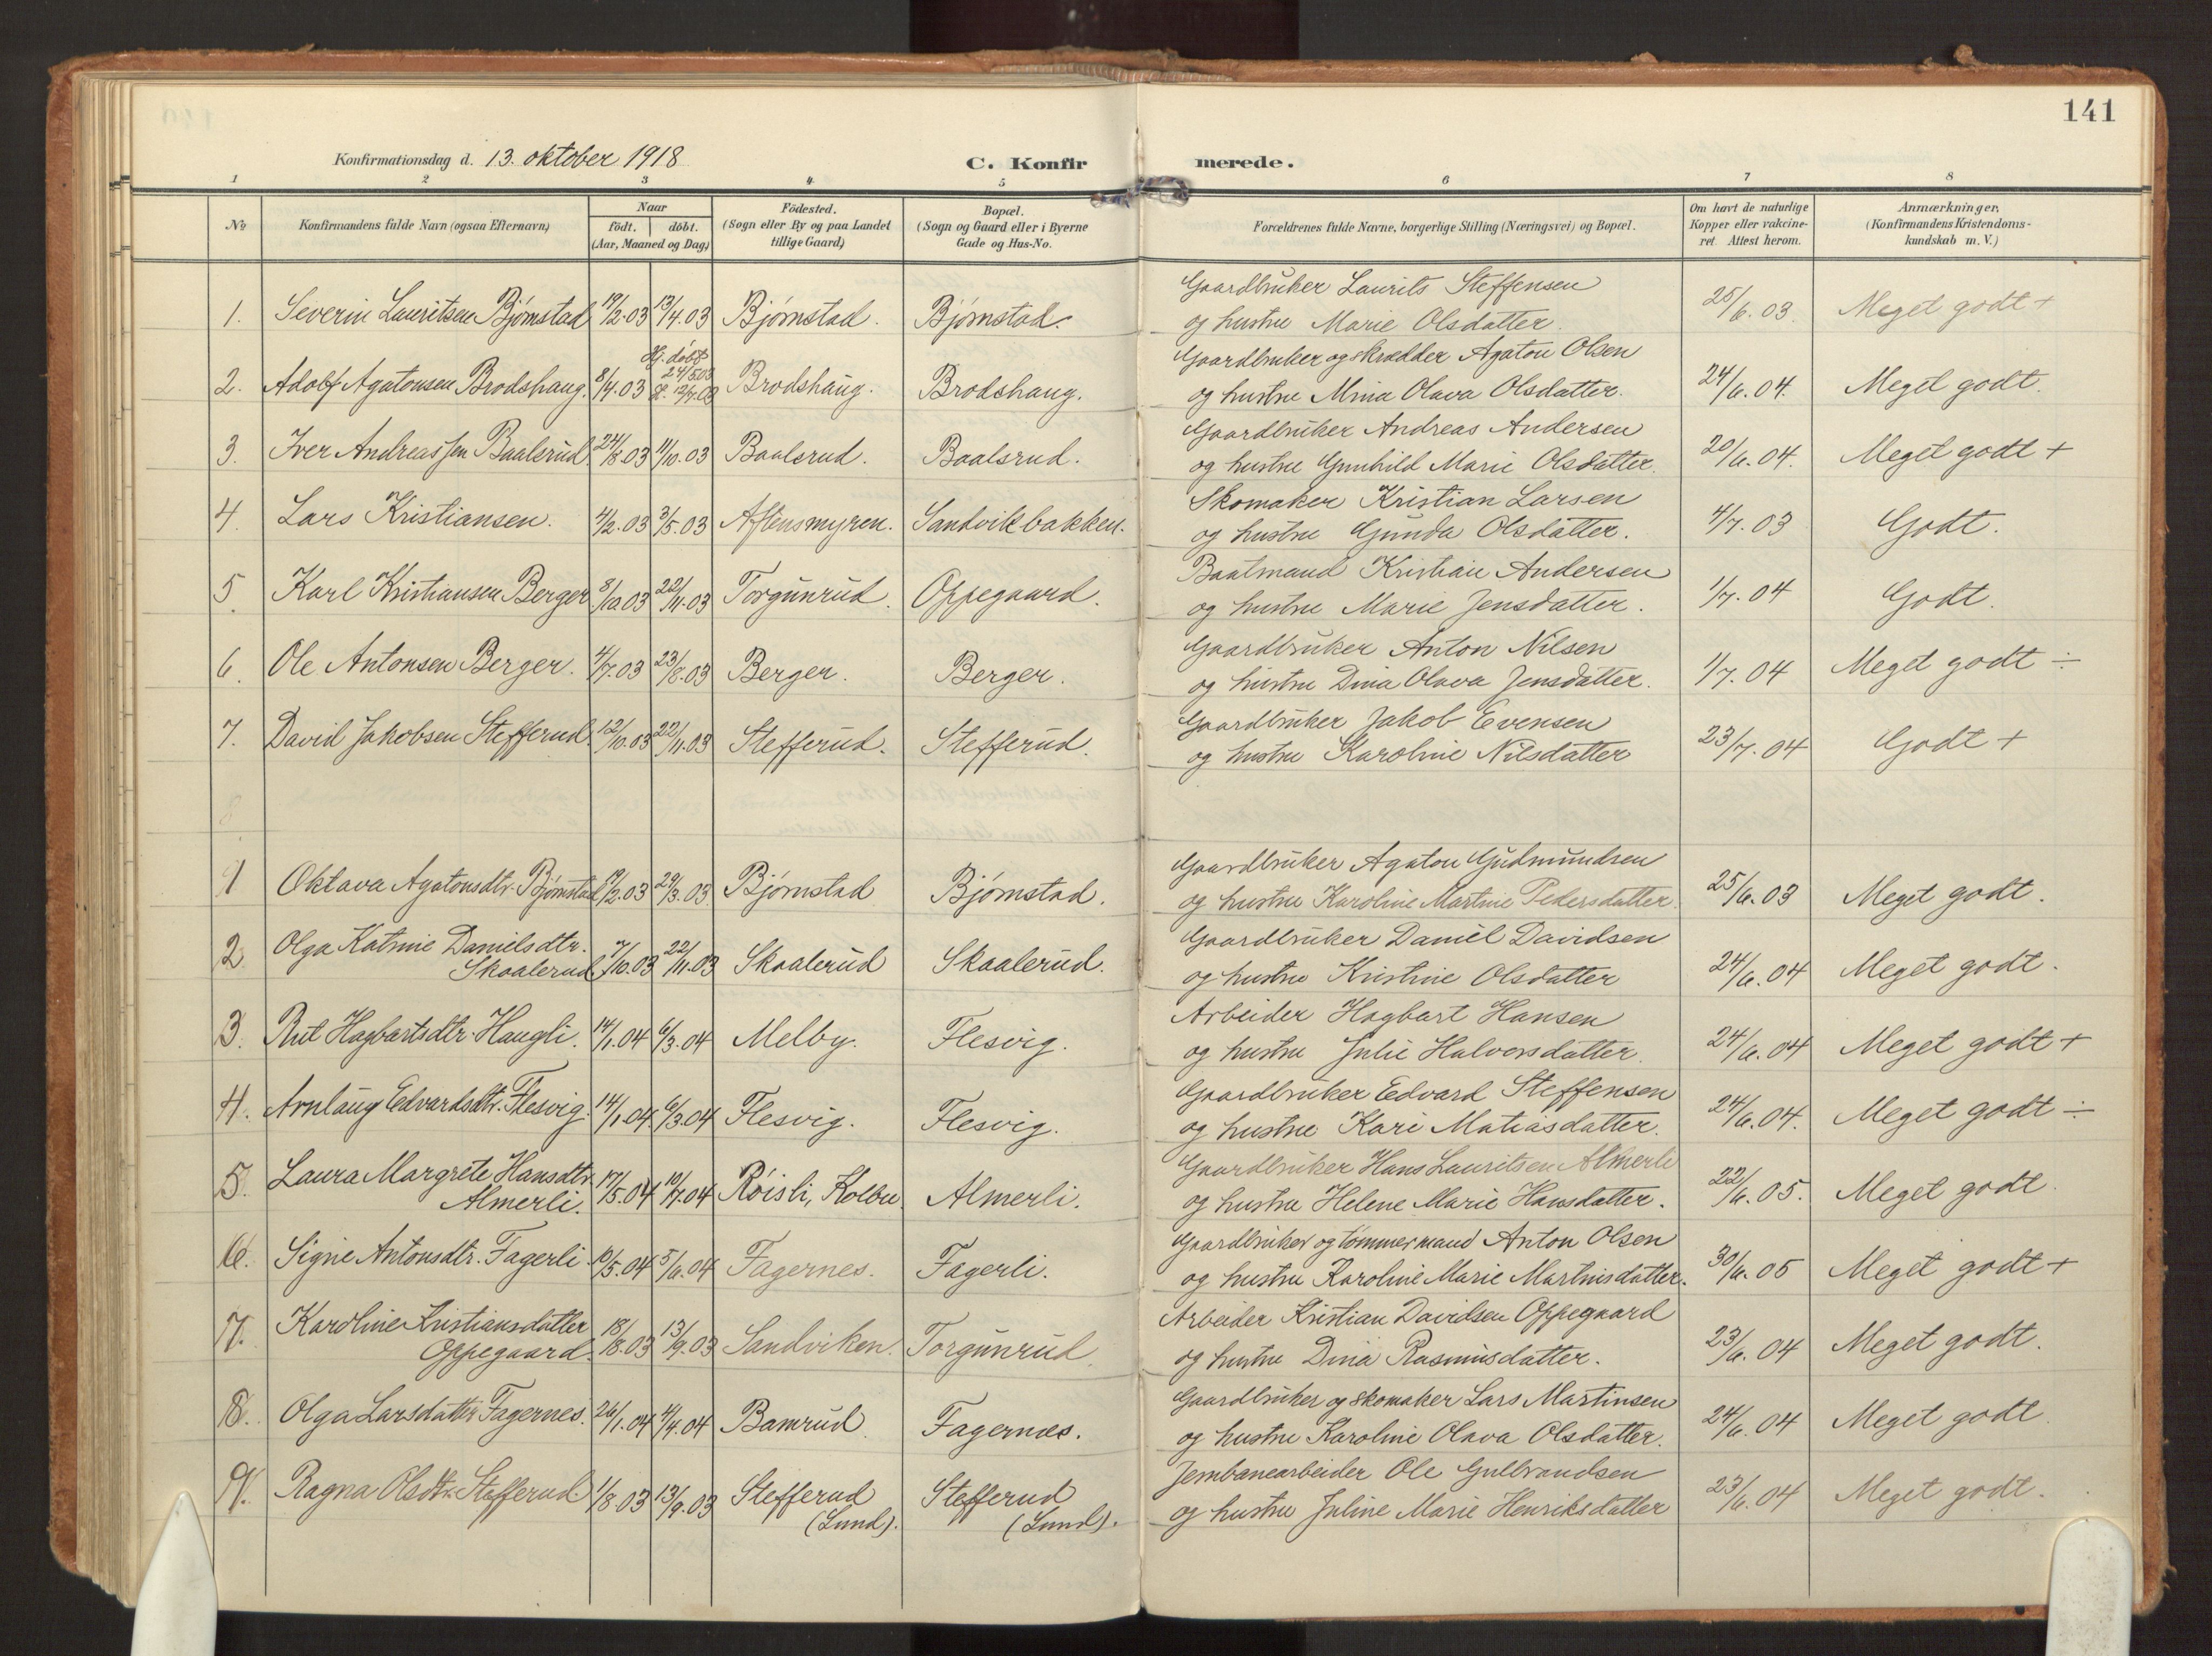 141
Konfirmationsdag d. 13. oktober 1918
C. Konfirmerede.
1 2 3 4 5 6 7 8
No Konfirmandens fulde Navn (ogsaa Efternavn) Naar födt. döbt. (Aar, Maaned og Dag) Födested. (Sogn eller By og paa Landet tillige Gaard) Bopæl. (Sogn og Gaard eller i Byerne Gade og Hus-No. Forældrenes fulde Navne, borgerlige Stilling (Næringsvei) og Bopæl. Om havt de naturlige Kopper eller vakcineret. Attest herom. Anmærkninger. (Konfirmandens Kristendomskundskab m. V.)
1. Severin Lauritsen Bjørnstad 19/2.03 13/4.03 Bjørnstad. Bjørnstad. Gaardbruker Laurits Steffensen
og hustru Marie Olsdatter. 25/6.03. Meget godt +
2. Adolf Agatonsen Brodshaug. 8/4.03 Hj. døbt 24/5.03 12/7.03 Brodshaug. Brodshaug. Gaardbruker og skrædder Agaton Olsen
og hustru Mina Olava Olsdatter. 24/6.04. Meget godt.
3. Iver Andreassen Baalsrud. 24/8.03 11/10.03 Baalsrud. Baalsrud. Gaardbruker Andreas Andersen
og hustru Gunhild Marie Olsdatter. 20/6.04. Meget godt +
4. Lars Kristiansen. 4/2.03 3/5.03 Aftensmyren. Sandvikbakken. Skomaker Kristian Larsen
og hustru Gunda Olsdatter. 4/7.03 Godt.
5. Karl Kristiansen Berger 8/10.03 22/11.03 Torgunrud. Oppegaard. Baatmand Kristian Andersen
og hustru Marie Jensdatter. 1/7.04 Godt.
6. Ole Antonsen Berger. 4/7.03 23/8.03 Berger. Berger. Gaardbruker Anton Nilsen
og hustru Dina Olava Jensdatter. 1/7.04 Meget godt ÷
7. David Jakobsen Stefferud. 12/10.03 22/11.03 Stefferud. Stefferud. Gaardbruker Jakob Evensen
og hustru Karoline Nilsdatter 23/7.04 Godt +
8.
1 Oktava Agatonsdtr. Bjørnstad 19/2.03 29/3.03. Bjørnstad Bjørnstad. Gaardbruker Agaton Gudmundsen
og hustru Karoline Martine Pedersdatter. 25/6.03 Meget godt.
2 Olga Katrine Danielsdtr.
Skaalerud 7/10.03 22/11.03 Skaalerud Skaalerud. Gaardbruker Daniel Davidsen
og hustru Kristine Olsdatter 24/6.04 Meget godt.
3. Rut Hagbartsdtr. Haugli. 14/1.04 6/3.04 Melby. Flesvig. Arbeider Hagbart Hansen
og hustru Julie Halvorsdatter. 24/6.04 Meget godt +
4. Arnlaug Edvardsdtr. Flesvig. 14/1.04. 6/3.04 Flesvig. Flesvig. Gaardbruker Edvard Steffensen
og hustru Kari Matiasdatter. 24/6.04. Meget godt ÷
5. Laura Margrete Hansdtr.
Almerli. 17/5.04 10/7.04 Röisli, Kolbu Almerli. Gaardbruker Hans Lauritsen Almerli
og hustru Helene Marie Hansdatter. 22/6.05. Meget godt.
6. Signe Antonsdtr. Fagerli. 10/5.04 5/6.04 Fagernes. Fagerli. Gaardbruker og tømmermand Anton Olsen
og hustru Karoline Marie Martinisdatter. 30/6.05 Meget godt +
7. Karoline Kristiansdatter
Oppegaard. 18/8.03 13/9.03 Sandviken. Torgunrud. Arbeider Kristian Davidsen Oppegaard
og hustru Dina Rasmusdatter. 23/6.04 Meget godt.
8. Olga Larsdatter Fagernes. 26/1.04 4/4.04 Bamrud. Fagernes. Gaardbruker og skomaker Lars Martinsen
og hustru Karoline Olava Olsdatter. 24/6.04 Meget godt.
9. Ragna Olsdtr. Stefferud. 1/8.03 13/9.03 Stefferud (Lund). Stefferud (Lund). Jernbanearbeider Ole Gulbrandsen
og hustru Juline Marie Henriksdatter 23/6.04 Meget godt.